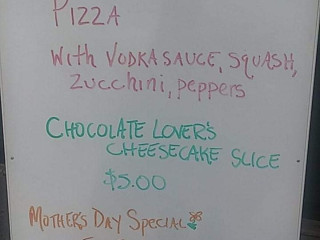 PIZZA
With VODKA SAUCE, SQUASH,
Zucchini, peppers
CHOCOLATE LOVER'S
CHEESECAKE SLICE
$5.00
MOTHER'S DAY SPECIAL